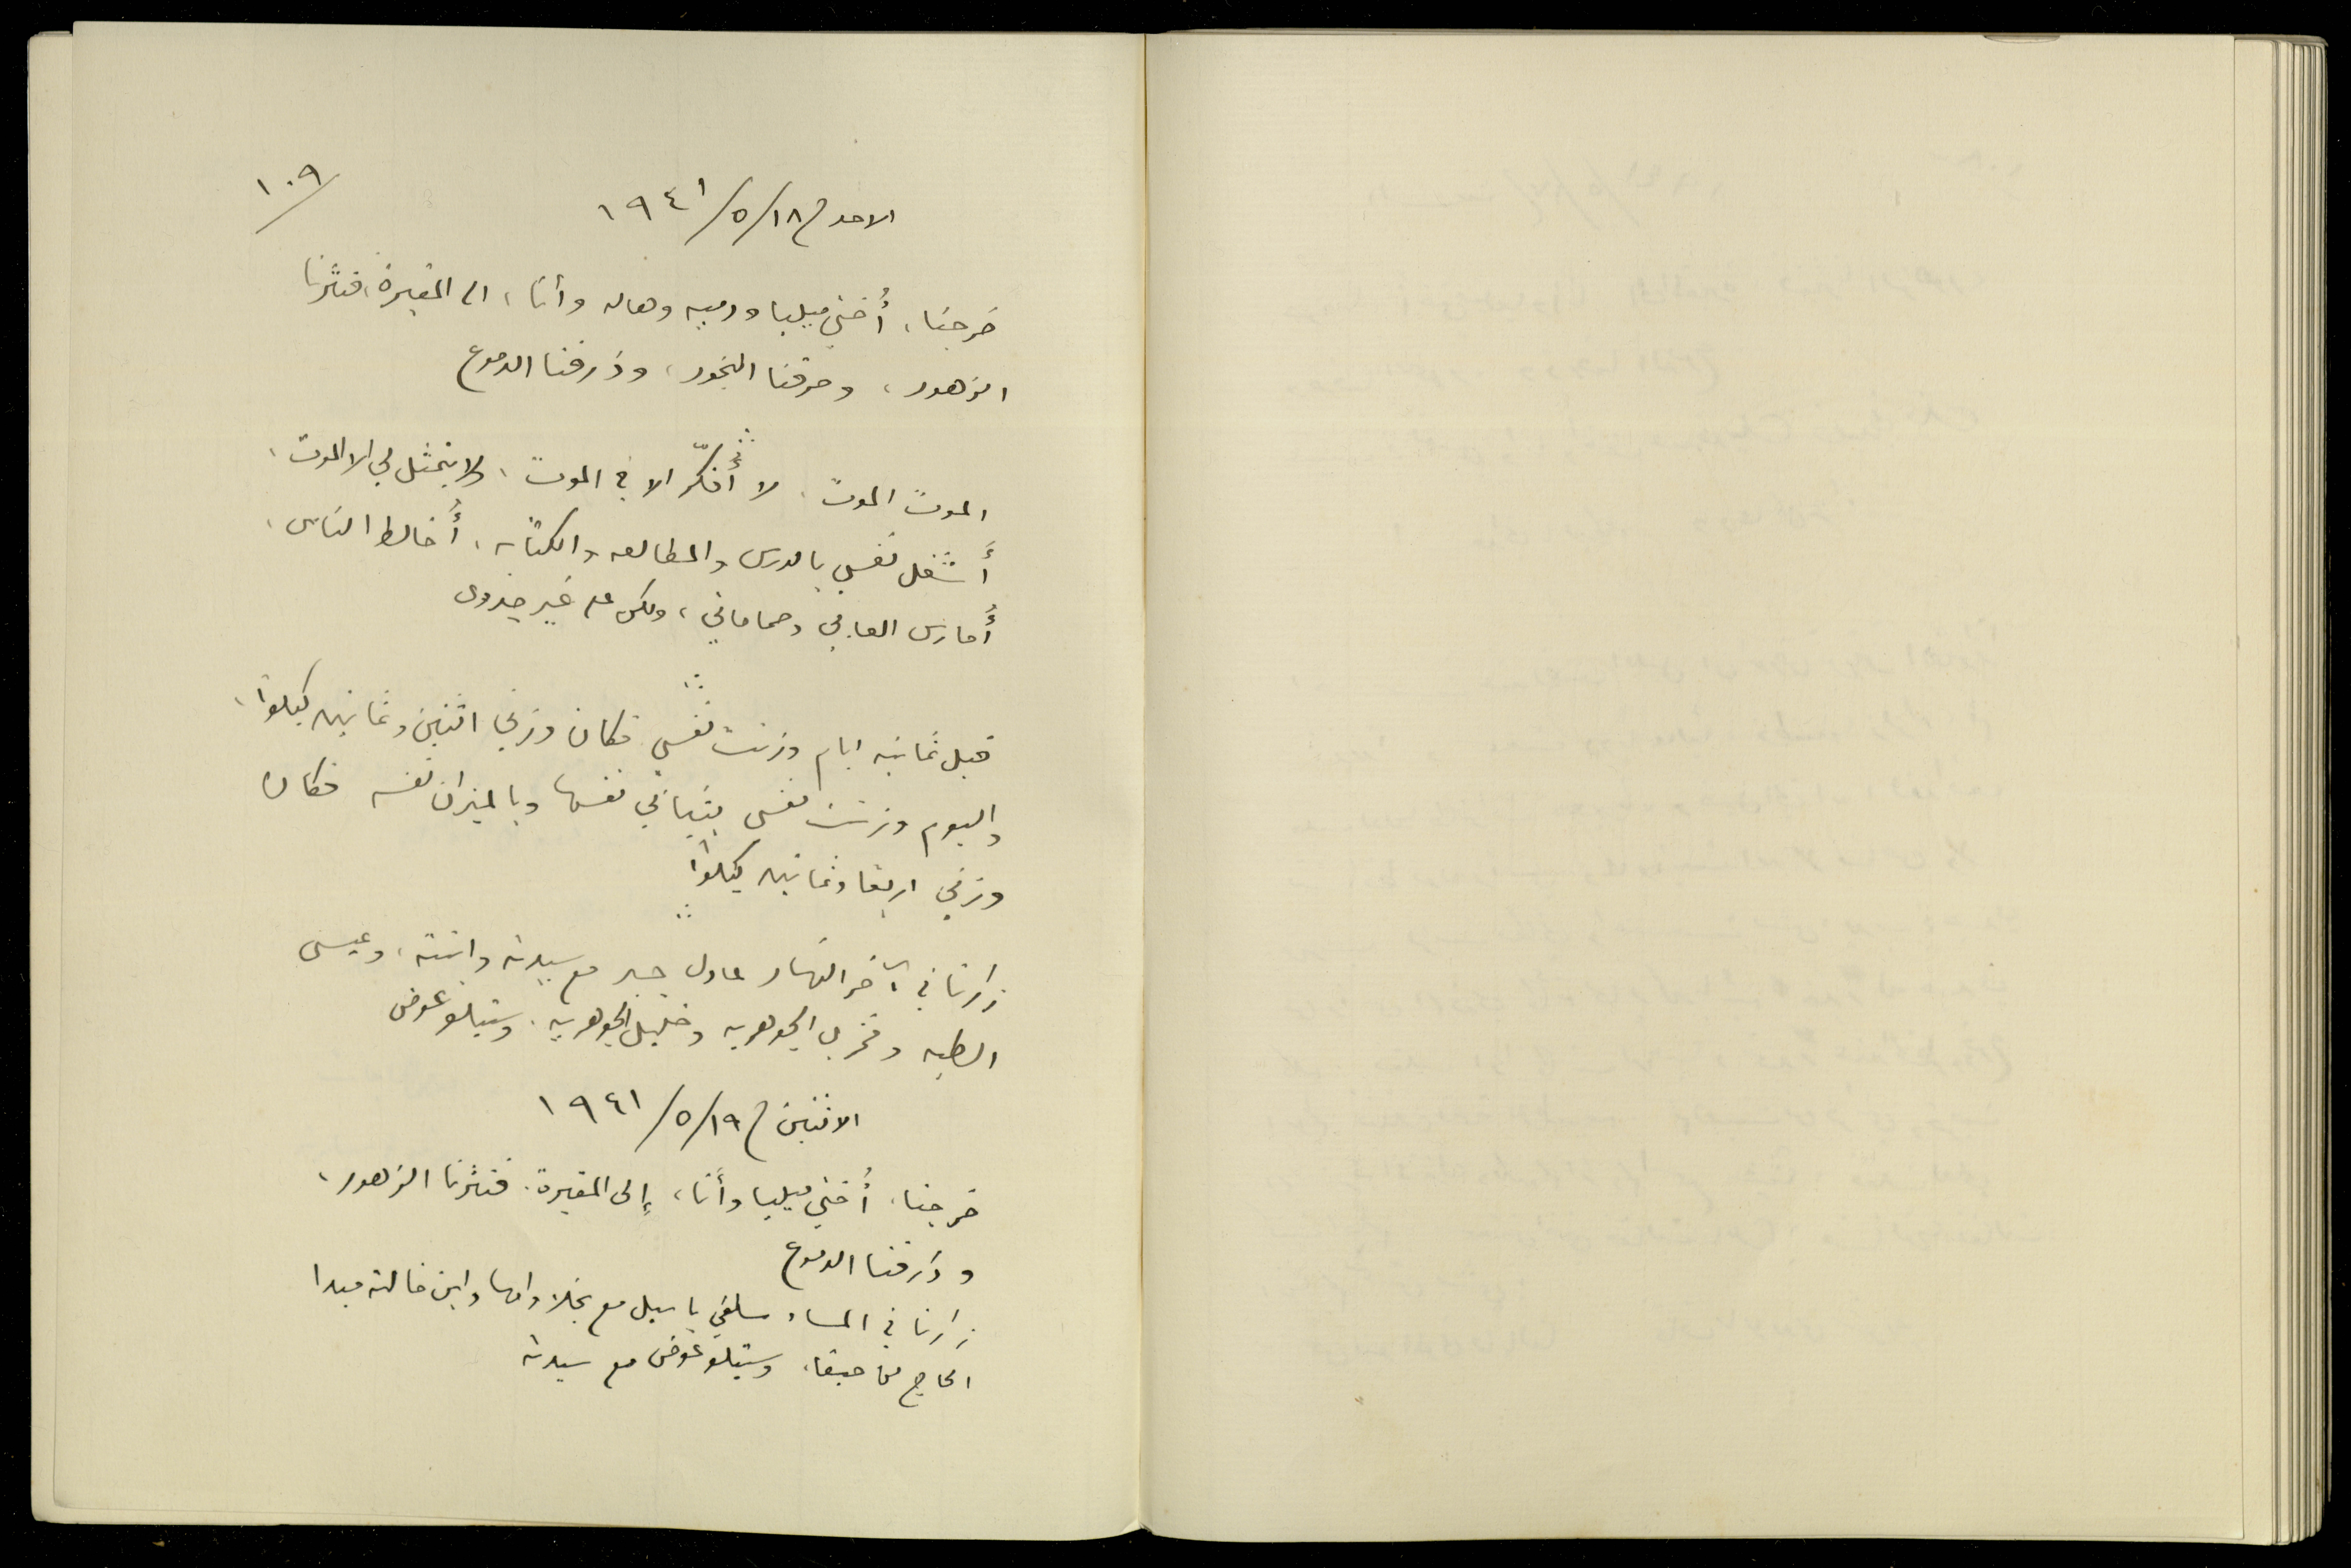 ١٠٩
الاحد في ١٨/٥/١٩٤١
خرجنا، أُختي ميليا ودميه وهاله وأنا، الى المقبرة، فنثرنا
الزهور، وحرقنا البخور، وذرفنا الدموع
الموت الموت، لا أُفكّر الا في الموت، ولا يتمثل لي الا الموت،
أَشغل نفسي بالدرس والمطالعه والكتابه، أُخالط الناس،
أُمارس العابي وحماماتي، ولكن على غير جدوى
قبل ثمانيه ايام وزنت نفسي فكان وزني اثنين وثمانين كيلوا،
واليوم وزنت نفسي بثيابي نفسها وبالميزان نفسه فكان
وزني اربعا وثمانين كيلوا
زارنا في آخر النهار عادل جبر مع سيدته وابنته، وعيسى
الطبه وفخري الجوهريه وخليل الجوهريه، وستيلو عوض
الاثنين في ١٩/٥/١٩٤١
خرجنا، أُختي ميليا وأَنا، إلى المقبرة، فنثرنا الزهور،
وذرفنا الدموع
زارنا في المساء سلفي باسيل مع نجلا وامها وابن خالته ميدا
الحاج من حيفا، وستيلو عوض مع سيدته